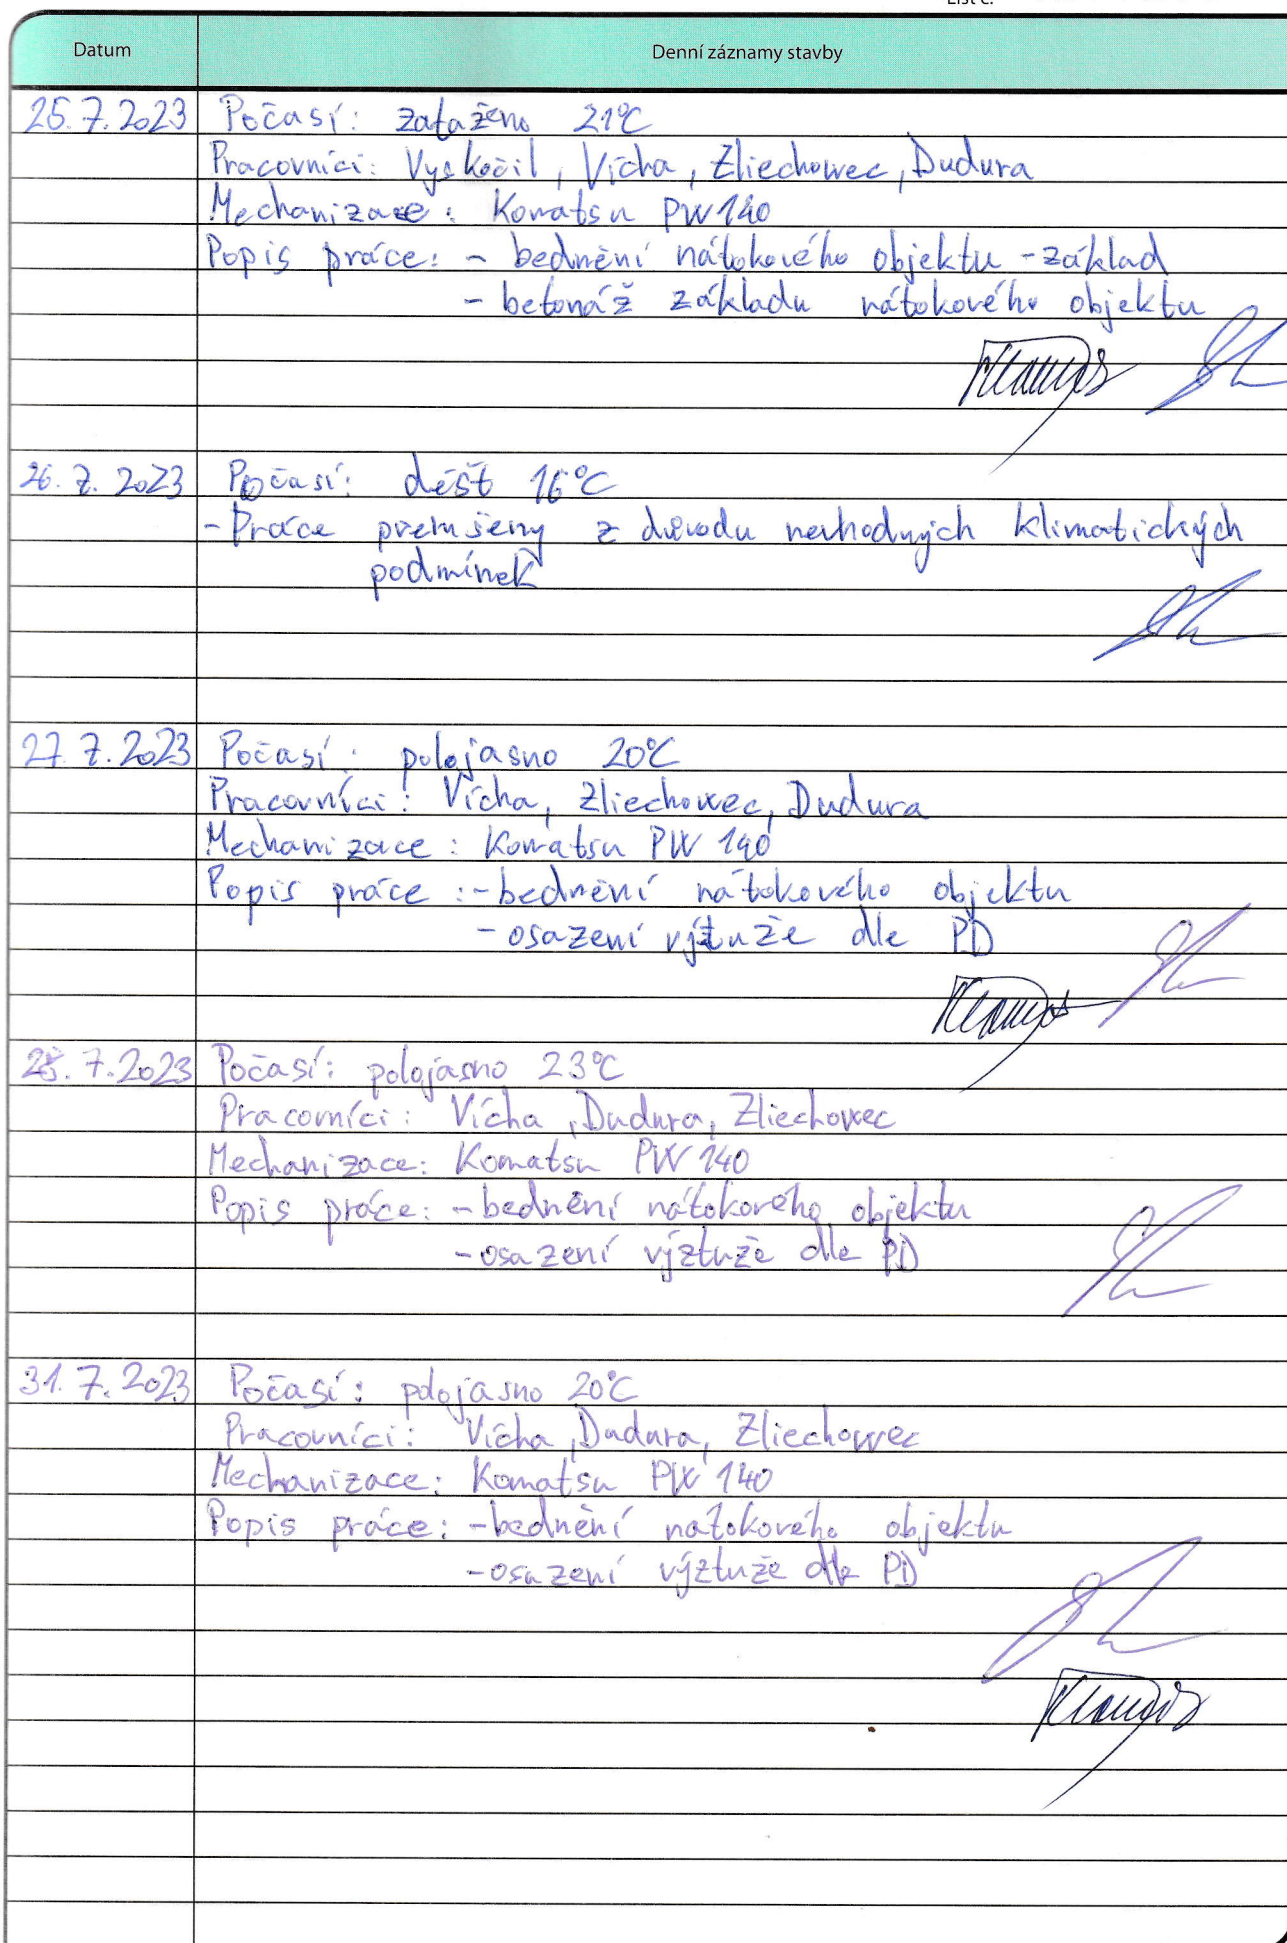 List č.
Datum
Denní záznamy stavby
25.7.2023 Počasí: zataženo 21°C
Pracovníci: Vyskočil, Vícha, Zliechowec, Dudura
Mechanizace: Komatsu PW140
Popis práce: - bednění nátokového objektu - základ
- betonáž základu nátokového objektu
26.7.2023 Počasí: déšť 16°C
- Práce přerušeny z důvodu nevhodných klimatických
podmínek
27.7.2023 Počasí: polojasno 20°C
Pracovníci: Vícha, Zliechowec, Dudura
Mechanizace: Komatsu PW 140
Popis práce: - bednění nátokového objektu
- osazení výztuže dle PD
28.7.2023 Počasí: polojasno 23°C
Pracovníci: Vícha, Dudura, Zliechowec
Mechanizace: Komatsu PW 140
Popis práce: - bednění nátokového objektu
- osazení výztuže dle PD
31.7.2023 Počasí: polojasno 20°C
Pracovníci: Vícha, Dudura, Zliechowec
Mechanizace: Komatsu PW 140
Popis práce: - bednění nátokového objektu
- osazení výztuže dle PD